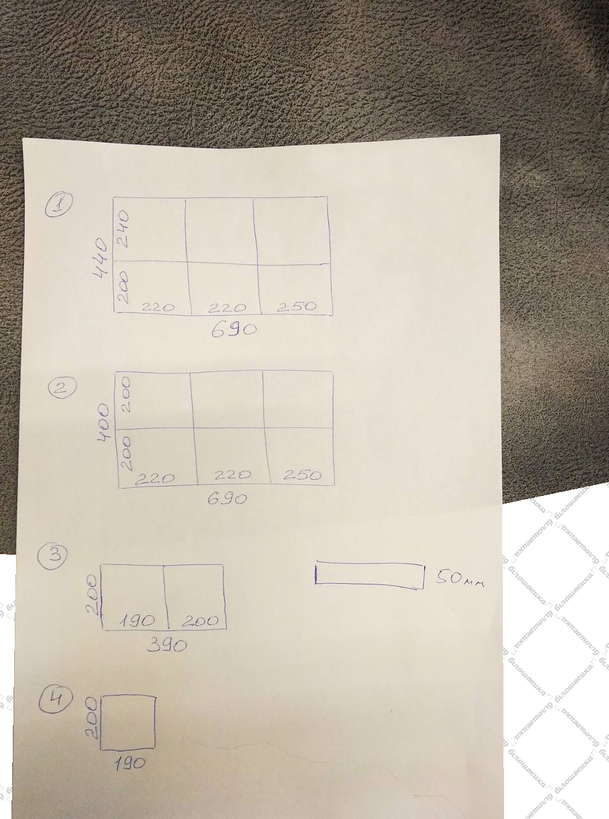 1
240
440
200
220 220 250
690
2
200
400
200
220 220 250
690
3
200
190 200
390
50мм
4
200
190